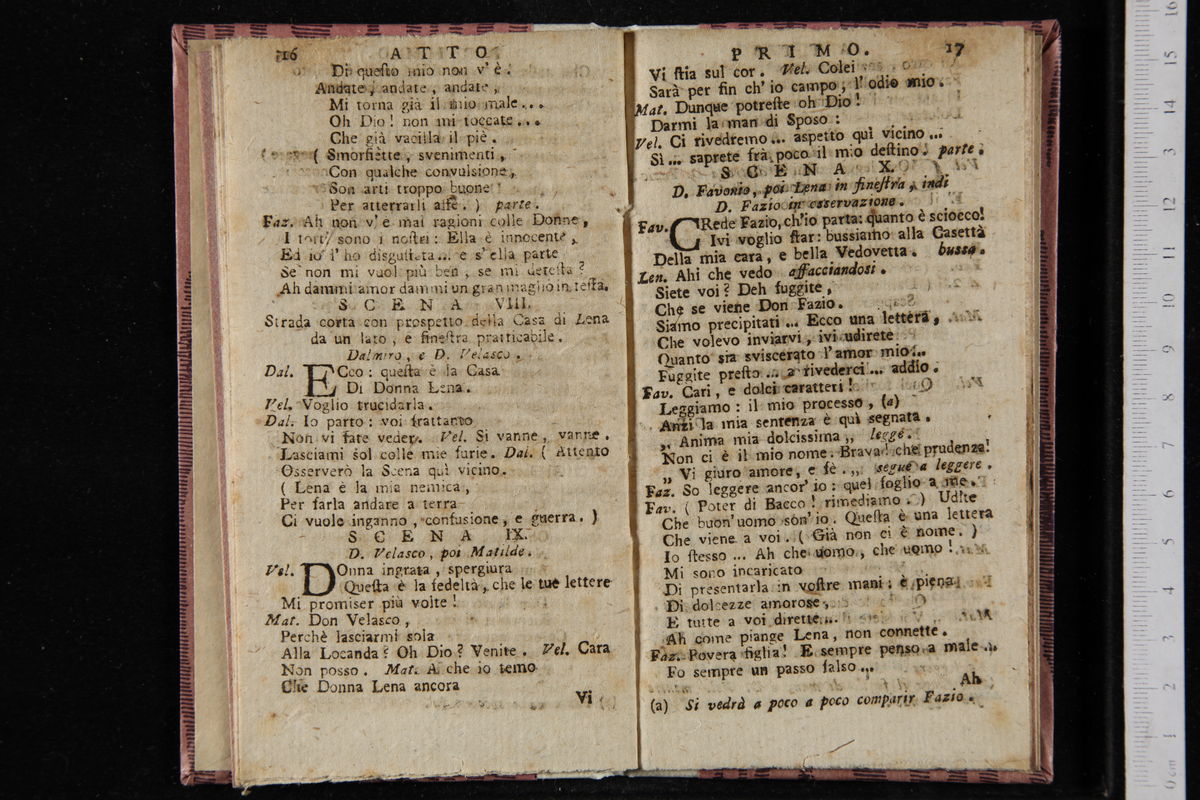 16 ATTO
Di questo mio non v'è.
Andate, andate, andate,
Mi torna già il mio male...
Oh Dio! non mi toccate...
Che già vacilla il piè.
( Smorfiette, svenimenti,
Con qualche convulsione,
Son arti troppo buone
Per atterrarli affè. ) parte.
Faz. Ah non v'e mai ragioni colle Donne,
I torti sono i nostri: Ella è innocente,
Ed io l'ho disgustata... e s'ella parte
Se non mi vuol più ben, se mi detesta?
Ah dammi amor dammi un gran maglio in testa.
SCENA VIII.
Strada corta con prospetto della Casa di Lena
da un lato, e finestra pratticabile.
Dalmiro, e D. Velasco.
Dal. ECco: questa è la Casa
Di Donna Lena.
Vel. Voglio trucidarla.
Dal. Io parto: voi frattanto
Non vi fate veder. Vel. Si vanne, vanne.
Lasciami sol colle mie furie. Dal. ( Attento
Osserverò la Scena quì vicino.
( Lena è la mia nemica,
Per farla andare a terra
Ci vuole inganno, confusione, e guerra. )
SCENA IX.
D. Velasco, poi Matilde.
Vel. DOnna ingrata, spergiura
Questa è la fedeltà, che le tue lettere
Mi promiser più volte!
Mat. Don Velasco,
Perchè lasciarmi sola
Alla Locanda? Oh Dio? Venite. Vel. Cara
Non posso. Mat. A che io temo
Che Donna Lena ancora
Vi
PRIMO. 17
Vi stia sul cor. Vel. Colei
Sarà per fin ch'io campo, l'odio mio.
Mat. Dunque potreste oh Dio!
Darmi la man di Sposo:
Vel. Ci rivedremo... aspetto quì vicino...
Sì... saprete frà poco il mio destino. parte.
SCENA X.
D. Favonio, poi Lena in finestra, indi
D. Fazio in osservazione.
Fav. CRede Fazio, ch'io parta: quanto è sciocco!
Ivi voglio star: bussiamo alla Casetta
Della mia cara, e bella Vedovetta. bussa.
Len. Ahi che vedo affacciandosi.
Siete voi? Deh fuggite,
Che se viene Don Fazio.
Siamo precipitati... Ecco una lettera,
Che volevo inviarvi, ivi udirete
Quanto sia sviscerato l'amor mio...
Fuggite presto... a rivederci... addio.
Fav. Cari, e dolci caratteri!
Leggiamo: il mio processo, (a)
Anzi la mia sentenza è quì segnata.
„ Anima mia dolcissima „ legge.
Non ci è il mio nome. Brava! che prudenza!
„ Vi giuro amore, e fè. „ segue a leggere.
Faz. So leggere ancor'io: quel foglio a me.
Fav. ( Poter di Bacco! rimediamo. ) Udite
Che buon'uomo son'io. Questa è una lettera
Che viene a voi. ( Già non ci è nome. )
Io stesso... Ah che uomo, che uomo!
Mi sono incaricato
Di presentarla in vostre mani: è piena
Di dolcezze amorose,
E tutte a voi dirette...
Ah come piange Lena, non connette.
Faz. Povera figlia! E sempre penso a male...
Fo sempre un passo falso...
Ah
(a) Si vedrà a poco a poco comparir Fazio.